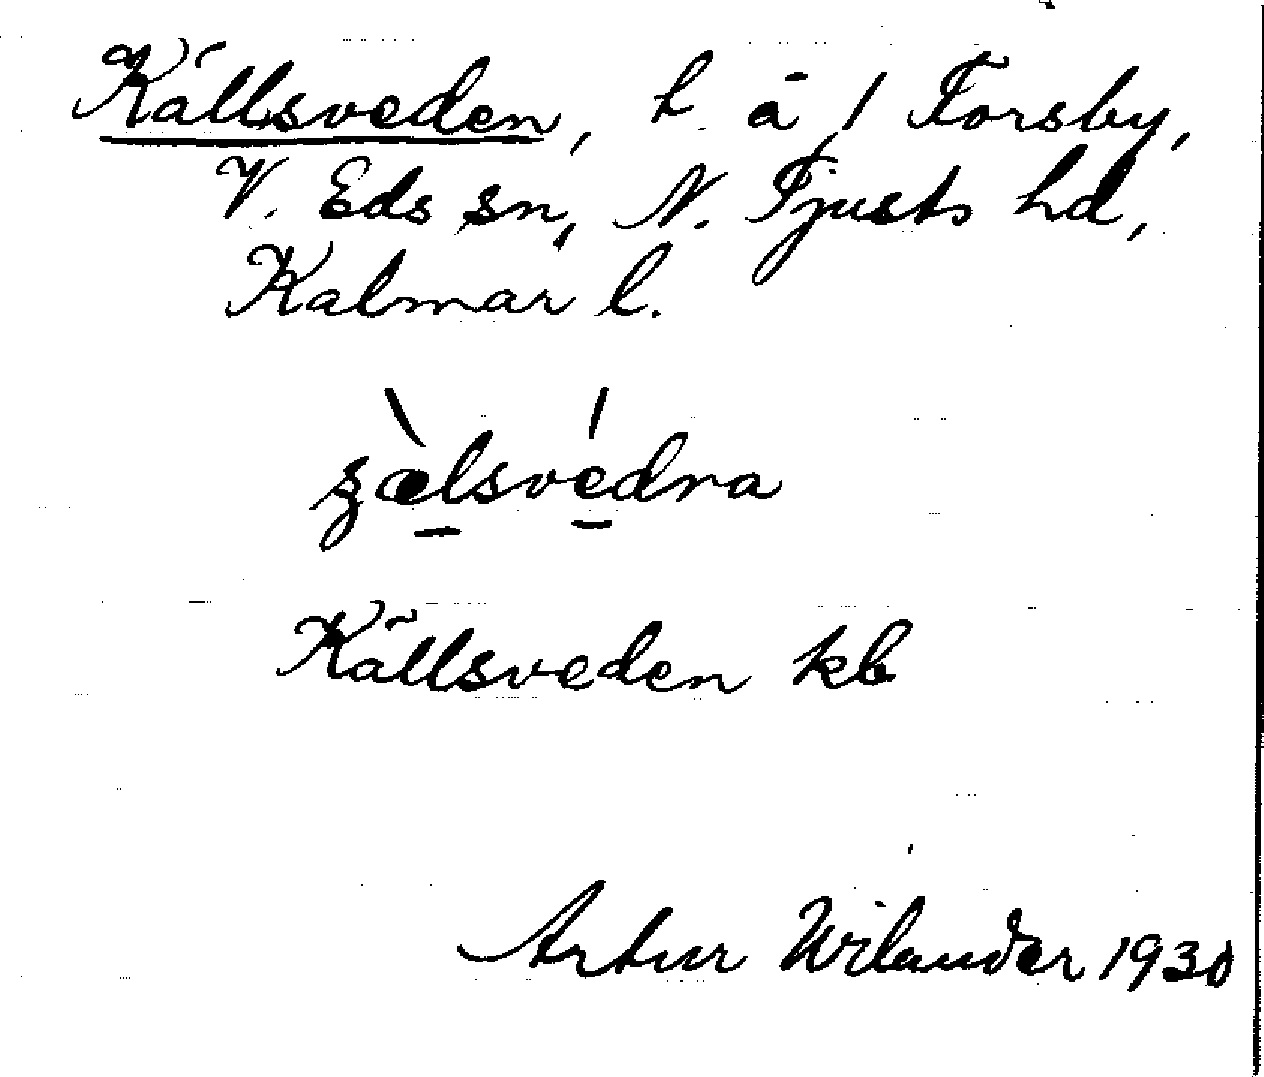 Källsveden, h å / Forsby,
V. Eds sn, N. Tjusts hd,
Kalmar l.
Källsveden kb
Artur Wilander 1930